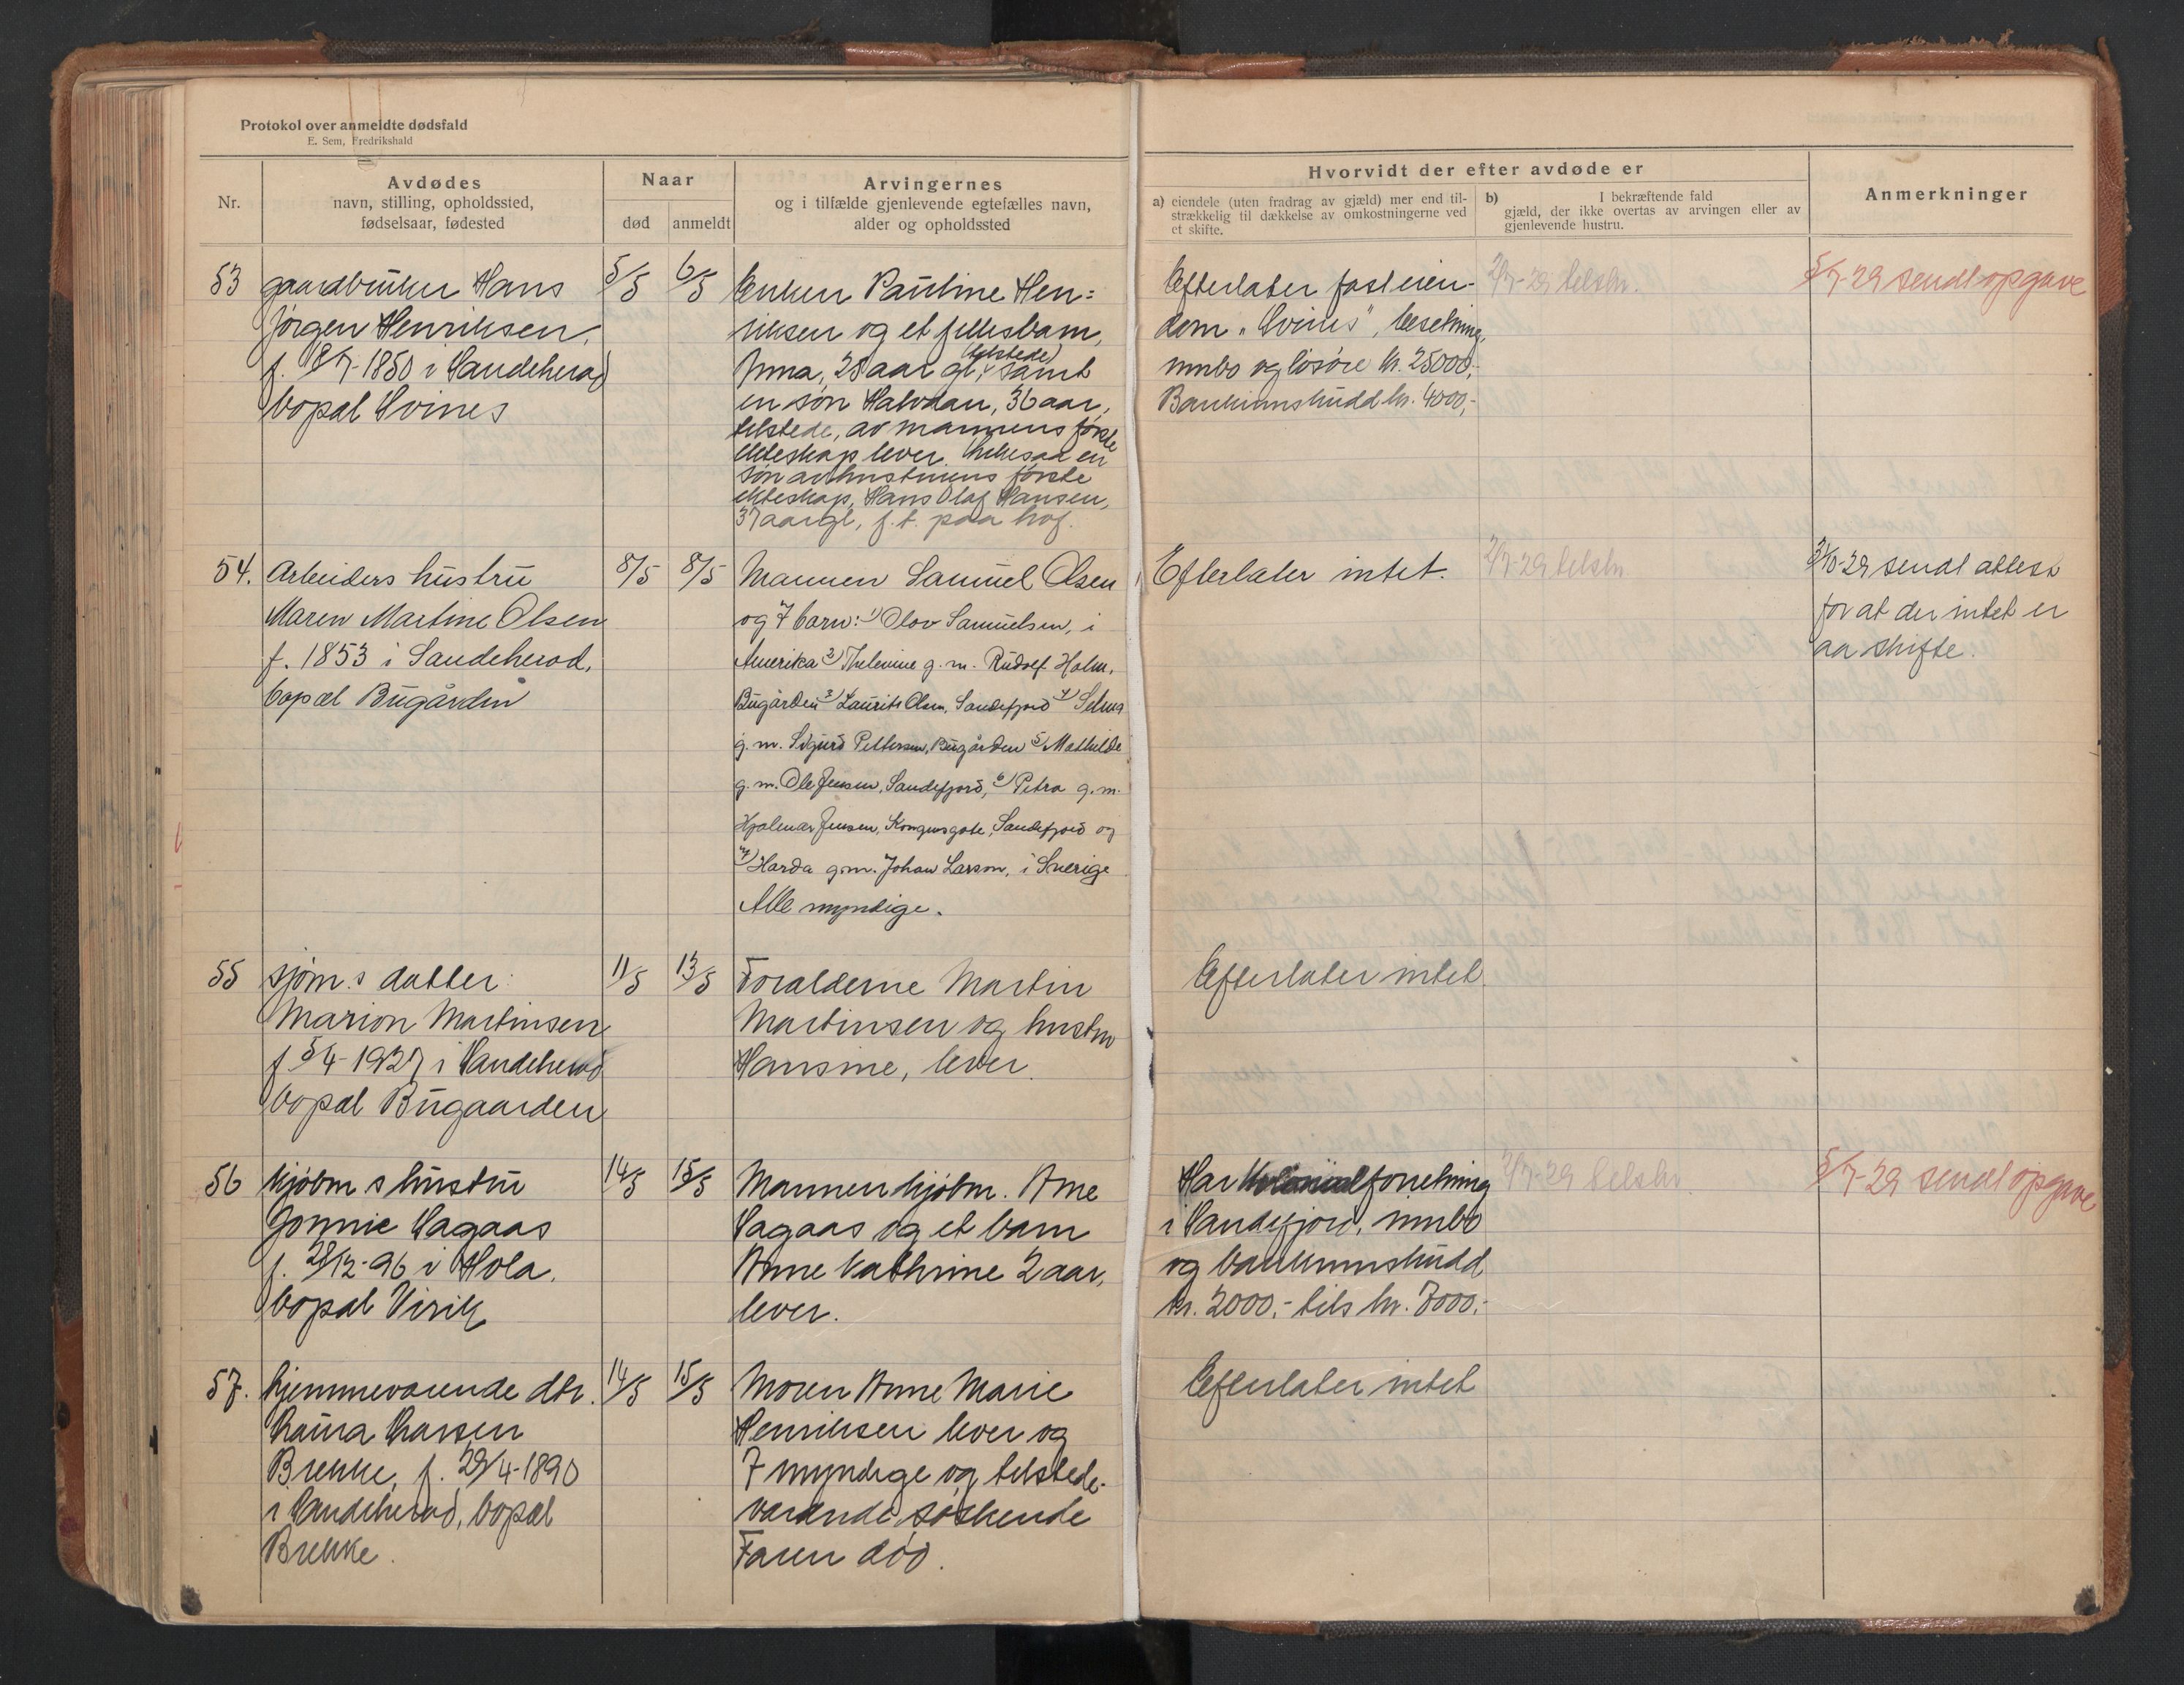 Protokol over anmeldte dødsfald
E. Sem, Fredrikshald
Nr.
Avdødes
navn, stilling, opholdssted,
fødselsaar, fødested
Naar
død
anmeldt
Arvingernes
og i tilfælde gjenlevende egtefælles navn,
alder og opholdssted
Hvorvidt der efter avdøde er
a) eiendele (uten fradrag av gjæld) mer end til-
strækkelig til dækkelse av omkostningerne ved
et skifte.
b) I bekræftende fald
gjæld, der ikke overtas av arvingen eller av
gjenlevende hustru.
Anmerkninger
53
gaardbruker Hans
Jørgen Henriksen,
f. 18/7-1850 i Sandeherad
bopæl Hvines
5/5
6/5
Enken Pauline Hen=
riksen og et fellesbarn,
Anna, 25 aar gl, (tilstede) samt
en søn Halvdan, 36 aar,
tilstede, av mannens første
ekteskap lever, likesaa en
søn av hustruens første
ekteskap, Hans Olaf Hansen,
37 aar gl, f. t. paa hvf.
Efterlater fast eien-
dom "Hvines", besetning,
innbo og løsøre kr. 25000,-
Bankinnskudd kr. 4000,-
2/7-29 tilskr.
5/7-29 sendt opgave
54.
Arbeiders hustru
Maren Martine Olsen
f. 1853 i Sandeherad,
bopæl Bugården
8/5
8/5
Mannen Samuel Olsen
og 7 barn: 1) Olav Samuelsen, i
Amerika 2) Thelenine g. m. Rudolf Holm,
Bugården 3) Laurits Olsen, Sandefjord 4) Selma
g. m. Sigurd Pettersen, Bugården 5) Mathilde
g. m. Ole Jensen, Sandefjord, 6) Petra g. m.
Hjalmar Jensen, Kongensgate, Sandefjord og
7) Harda g. m. Johan Larson, i Sverige
Alle myndige.
Efterlater intet.
2/7-29 tilskr
3/10-29 sendt attest
for at der intet er
aa skifte.
55
sjøm.s datter
Marion Martinsen
f 5/4-1927 i Sandeherad
bopæl Bugaarden
11/5
13/5
Foralderne Martin
Martinsen og hustru
Hansine, lever.
Efterlater intet.
56
kjøbm s hustru
Jonnie Sagaas
f. 28/12-96 i Hola.
bopæl Virik
14/5
15/5
Mannen kjøbm. Arne
Sagaas og et barn
Anne Kathrine 2 aar,
lever.
Har kolonialforretning
i Sandefjord, innbo
og bankinnskudd
kr. 2000,- tils kr. 7000,-
2/7-29 tilskr
5/7-29 sendt opgave
57.
hjemmeværende dtr.
Laura Larsen
Brekke, f. 29/4-1890
i Sandeherad, bopæl
Brekke.
14/5
15/5
Moren Anne Marie
Henriksen lever og
7 myndige og tilstede-
værende søskende
Faren død.
Efterlater intet